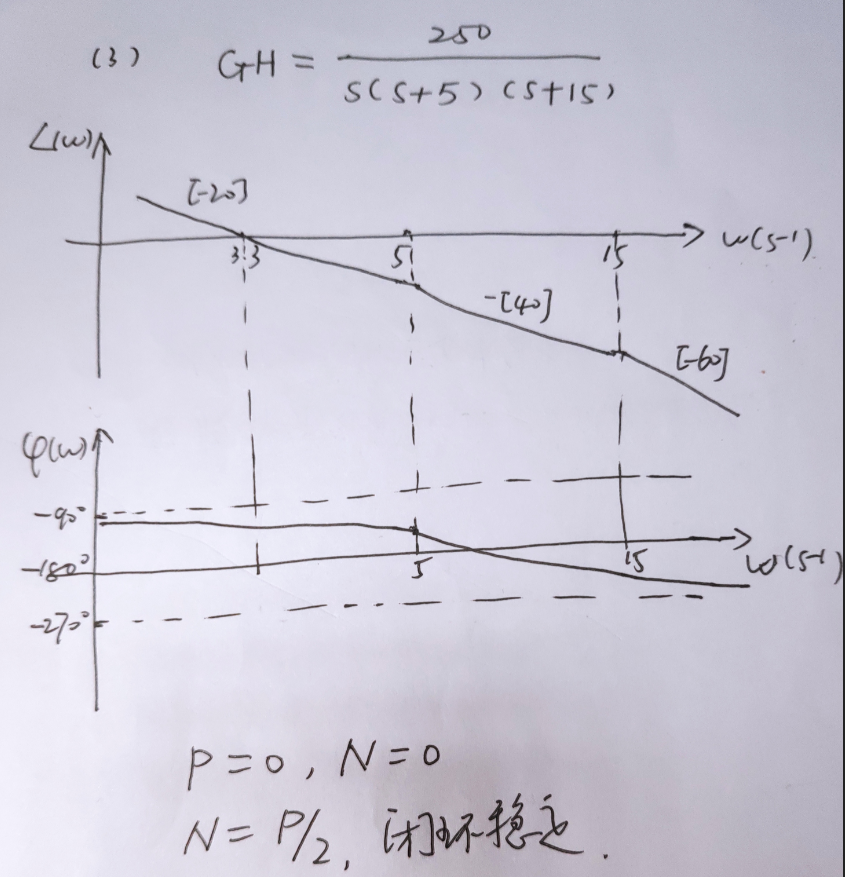 (3) GH = 250 / S(S+5)(S+15)
L(w)
[-20]
3.3 5 15 w(s-1)
-[40]
[-60]
φ(w)
-90°
-180° 5 15 w(s-1)
-270°
P=0, N=0
N=P/2, 闭环稳定.